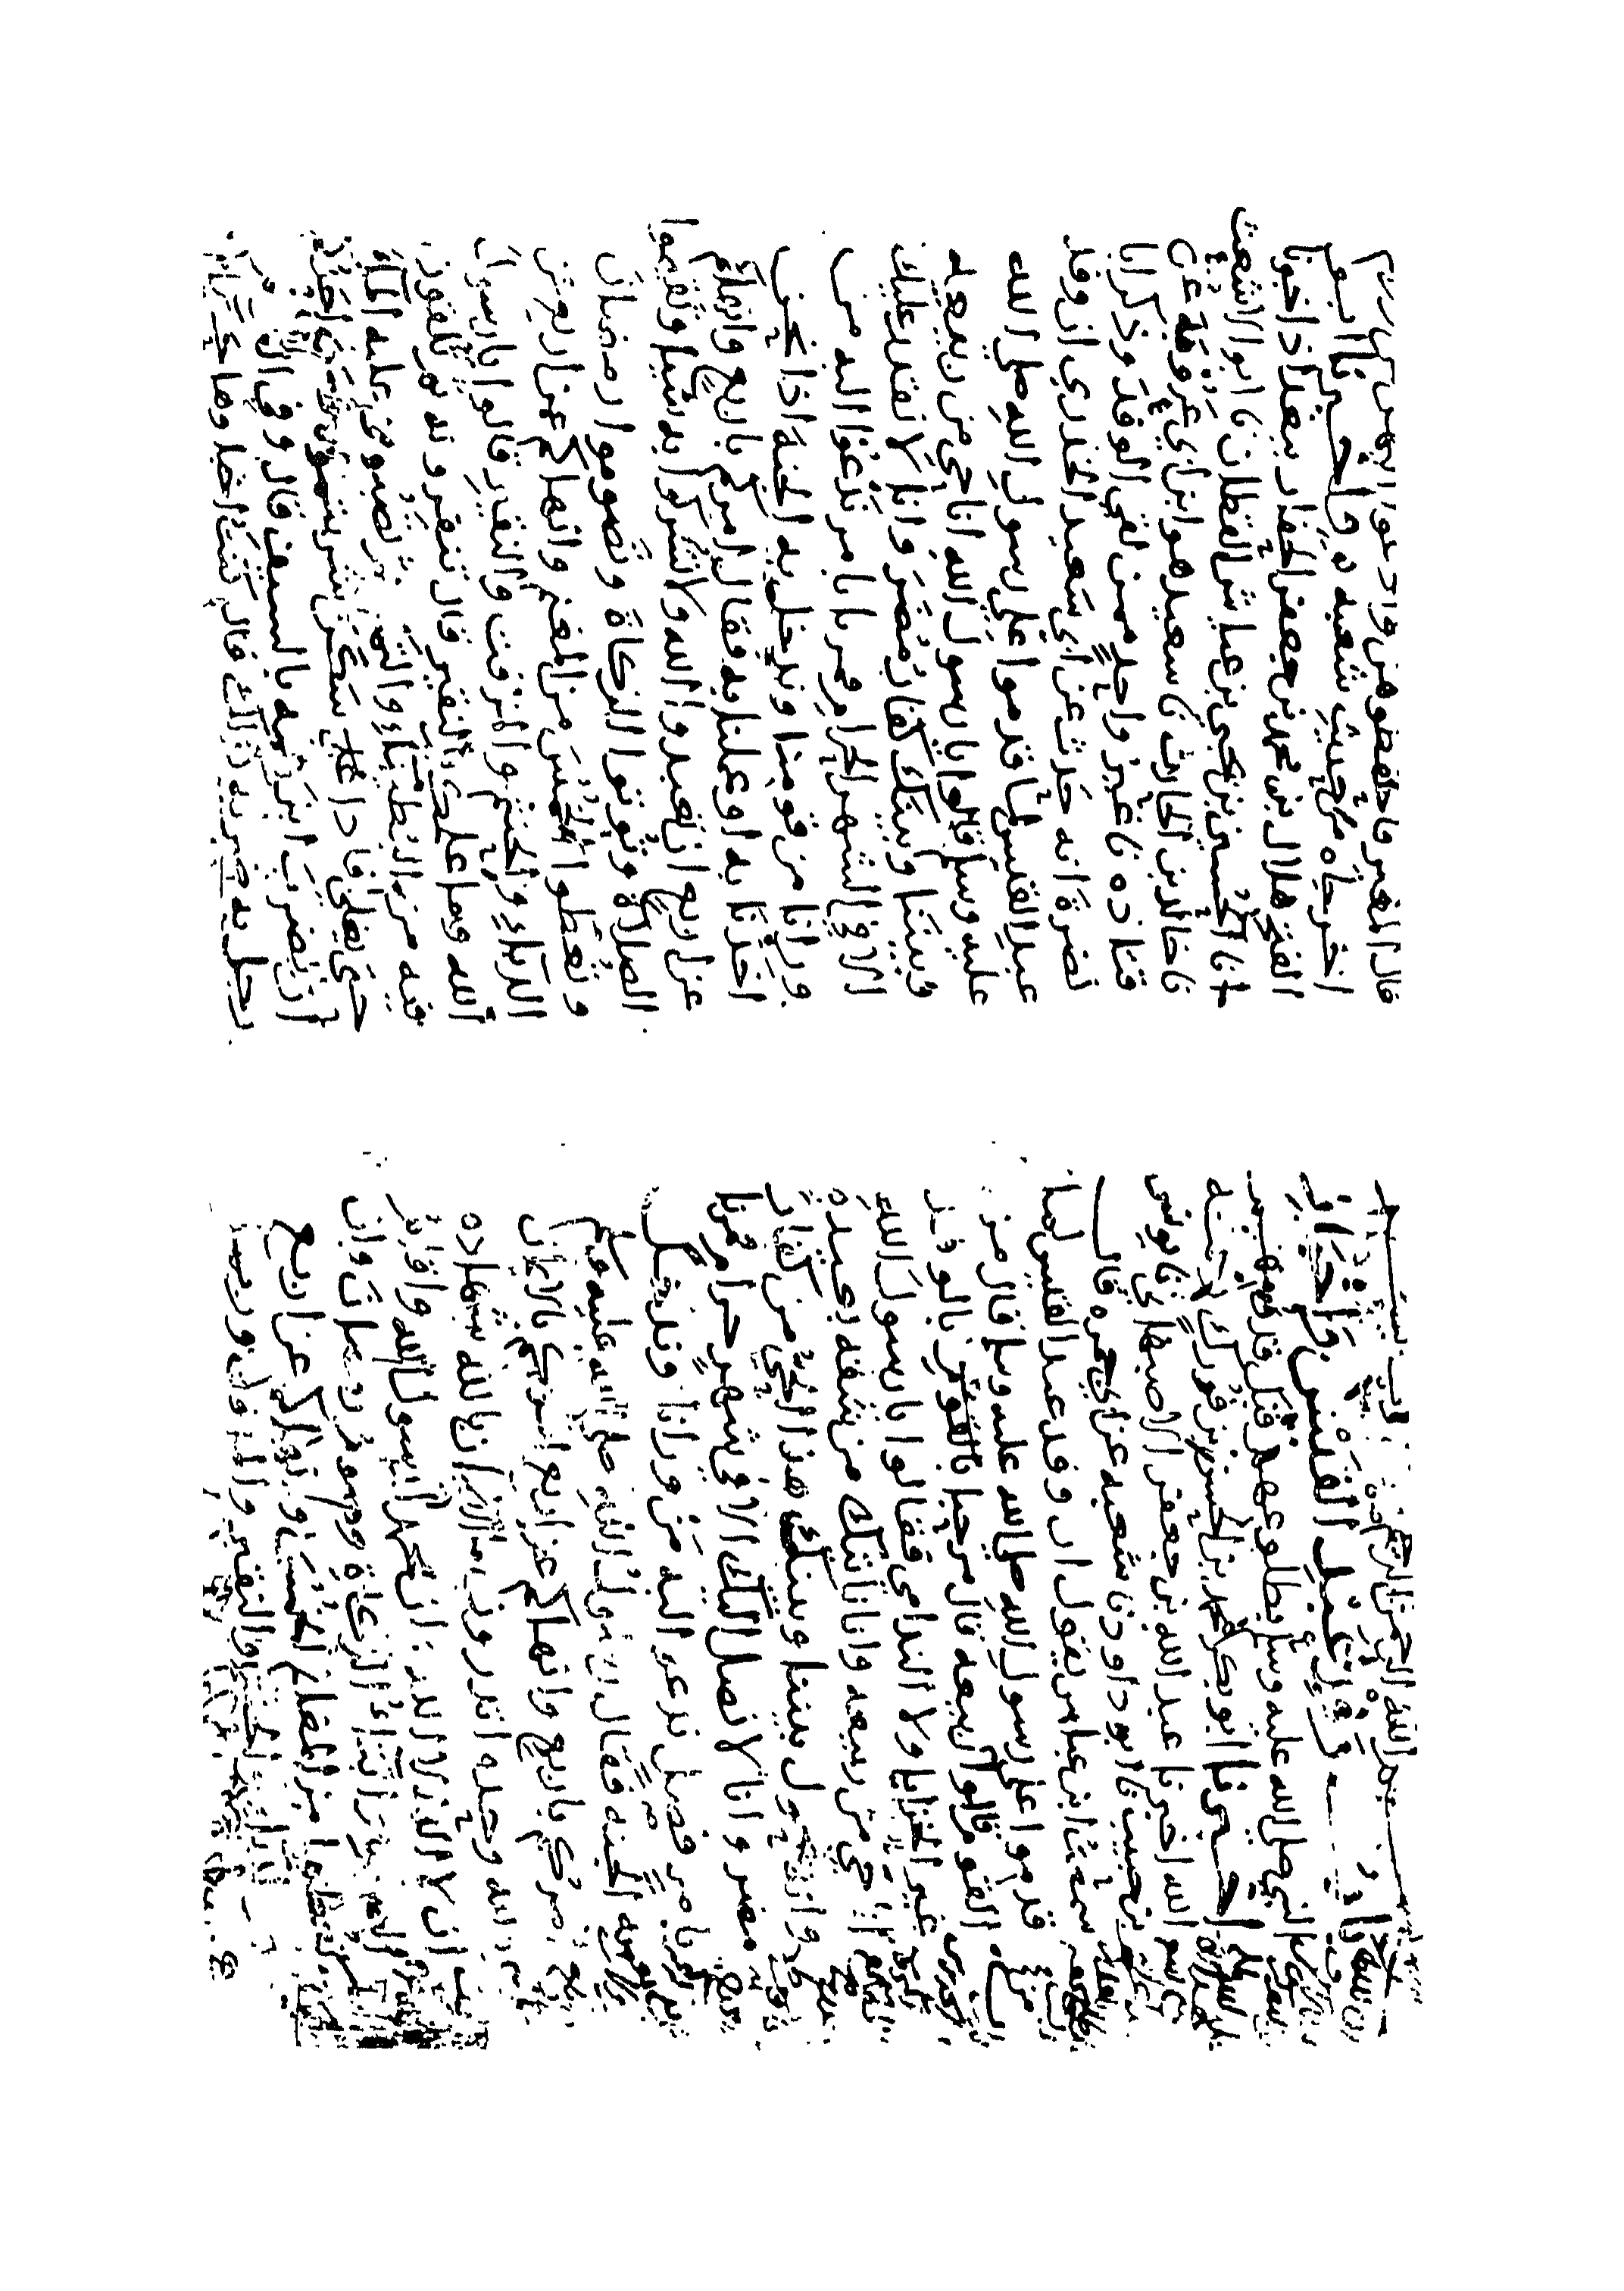 بسم الله الرحمن الرحيم
وفد عبد القيس واخبار
النبي صلى الله عليه وسلم بطلوعهم قبل قدومهم
اخبرنا ابو بكر محمد بن الحسن بن فورك رحمه
الله اخبرنا عبد الله بن جعفر الاصبهاني نا يونس
بن حبيب نا ابو داود نا شعبه عن ابي جمره قال
سمعت ابن عباس يقول ان وفد عبد القيس لما
قدموا على رسول الله صلى الله عليه وسلم قال من
القوم قالوا ربيعه قال مرحبا بالقوم بالوفد
غير الخزايا ولا الندامى فقالوا يا رسول الله
انا حي من ربيعه وانا ناتيك من شقه بعيده
وانه يحول بيننا وبينك هذا الحي من كفار
مضر وانا لا نصل اليك الا في شهر حرام فمرنا
بامر فصل ندعو اليه من ورانا وندخل
به الجنه فقال رسول الله صلى الله عليه وسلم
امركم باربع وانهاكم عن اربع امركم بالايمان
بالله وحده اتدرون ما الايمان بالله شهاده
ان لا اله الا الله وان محمدا رسول الله واقام
الصلاة وايتاء الزكاة وصوم رمضان وان
تعطوا من المغانم الخمس وانهاكم عن اربع
والحنتم والنقير والمزفت وربما
قال المقير فاحفظوهن وادعوا اليهن من وراكم
اخرجاه من حديث شعبه اخبرنا ابو
الفتح هلال بن محمد بن جعفر الحفار ببغداذ اخبرنا
انا الحسين بن يحيى بن عياش القطان نا ابو الاشعث
نا خالد بن الحارث نا سعيد هو ابن ابي عروبة عن
قتاده نا غير واحد ممن لقي الوفد وذكر ابا
نضرة انه حدث عن ابي سعيد الخدري ان وفد
عبد القيس لما قدموا على رسول الله صلى الله
عليه وسلم قالوا يا رسول الله انا حي من ربيعه
وبيننا وبينك كفار مضر وانا لا نقدر عليك
الا في الشهر الحرام فمرنا بامر ندعوا اليه من
ورانا من قومنا وندخل به الجنة اذا نحن
اخذنا به او عملنا به فقال امركم باربع وانهاكم
عن اربع ان تعبدوا الله ولا تشركوا به شيا وتقيموا
الصلاة وتؤتوا الزكاة وتصوموا رمضان
وتعطوا الخمس من المغنم وانهاكم عن اربع عن
الدباء والحنتم والمزفت والنقير قالوا يا رسول
الله وما علمك بالنقير قال تنقرونه ثم تلقون
فيه من القطيعاء والتمر ثم تصبون عليه الماء
حتى يغلي فاذا سكن شربتموه
ان يضرب ابن عمه بالسيف قال وفي القوم
رجل به ضربه كذلك قال كنت اخباها حياء